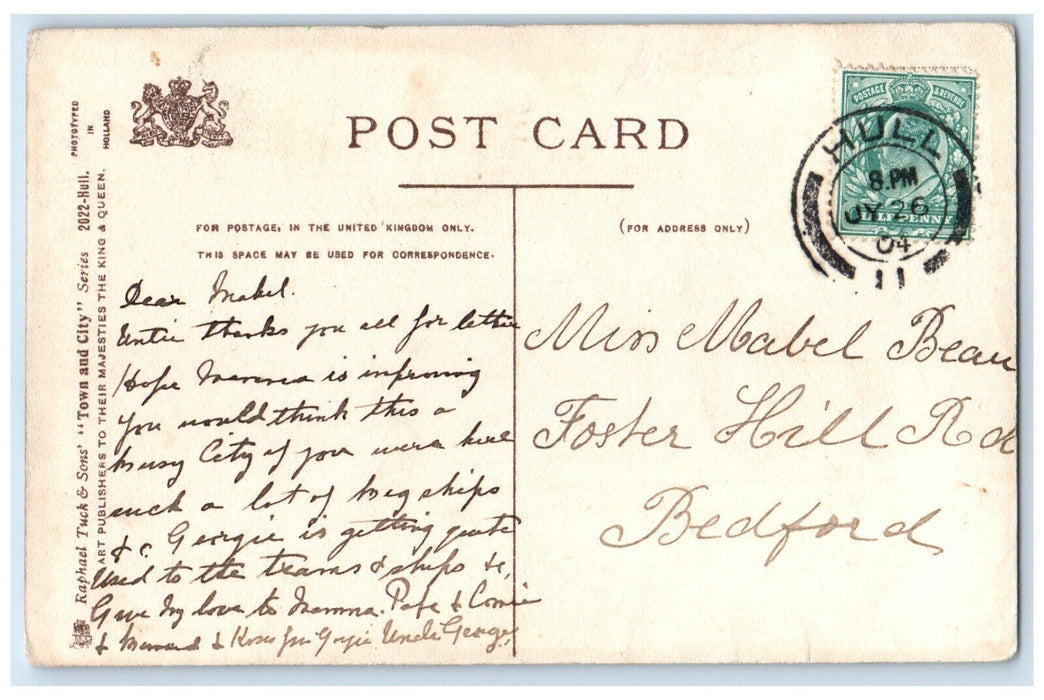 POST CARD
FOR POSTAGE, IN THE UNITED KINGDOM ONLY.
THIS SPACE MAY BE USED FOR CORRESPONDENCE.
(FOR ADDRESS ONLY)
POSTAGE & REVENUE
HALFPENNY
HULL
8.PM
JY 26
04
11
PHOTOTYPED
IN
HOLLAND
Raphael Tuck & Sons' "Town and City" Series 2022-Hull.
ART PUBLISHERS TO THEIR MAJESTIES THE KING & QUEEN.
Dear Mabel.
thanks you all for letter
Hope Mamma is improving
you would think this a
busy City if you were here
such a lot of big ships
&c. Georgie is getting quite
Used to the trams & ships &c,
Give My love to Mamma. Papa &
& Bernard & from Uncle George,
Miss Mabel Beau
Foster Hill Rd
Bedford